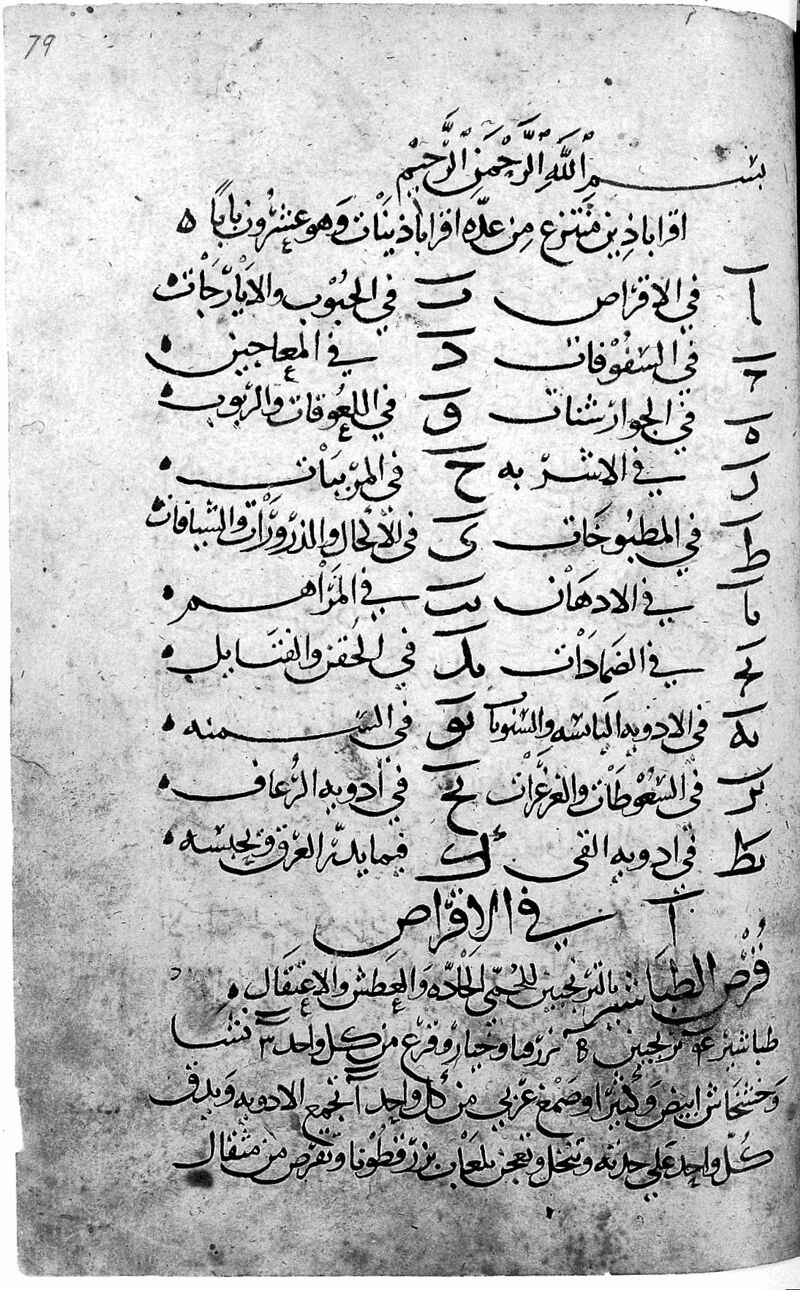 79
بسم الله الرحمن الرحيم
اقراباذين منتزع من عدّه اقراباذينات وهو عشرون بابا ه
ا في الاقراص ب في الحبوب والايارجات
ج في السفوفات د في المعاجين
ه في الجوارشنات و في اللعوقات والربوب
ز في الاشربه ح في المربيات
ط في المطبوخات ى في الاكحال والذرورات والشيافات
يا في الادهان يب في المراهم
يج في الضمادات يد في الحقن والفتايل
يه في الادويه اليابسه والسنونات يو في السمنه
يز في السعوطات والغرغرات يح في ادويه الرعاف
يط في ادويه القى ك فيما يدرّ العرق ويحبسه
ا في الاقراص
قرص الطباشير بالترنجبين للحمى الحادّه والعطش والاعتقال
طباشير ترنجبين بزر قثا وخيار وقرع من كل واحد ٣ نشا
وخشخاش ابيض وكثيرا وصمغ عربي من كل واحد ا تجمع الادويه ويدق
كل واحد على حدته وتنخل وتعجن بلعاب بزر قطونا وتقرص من مثقال